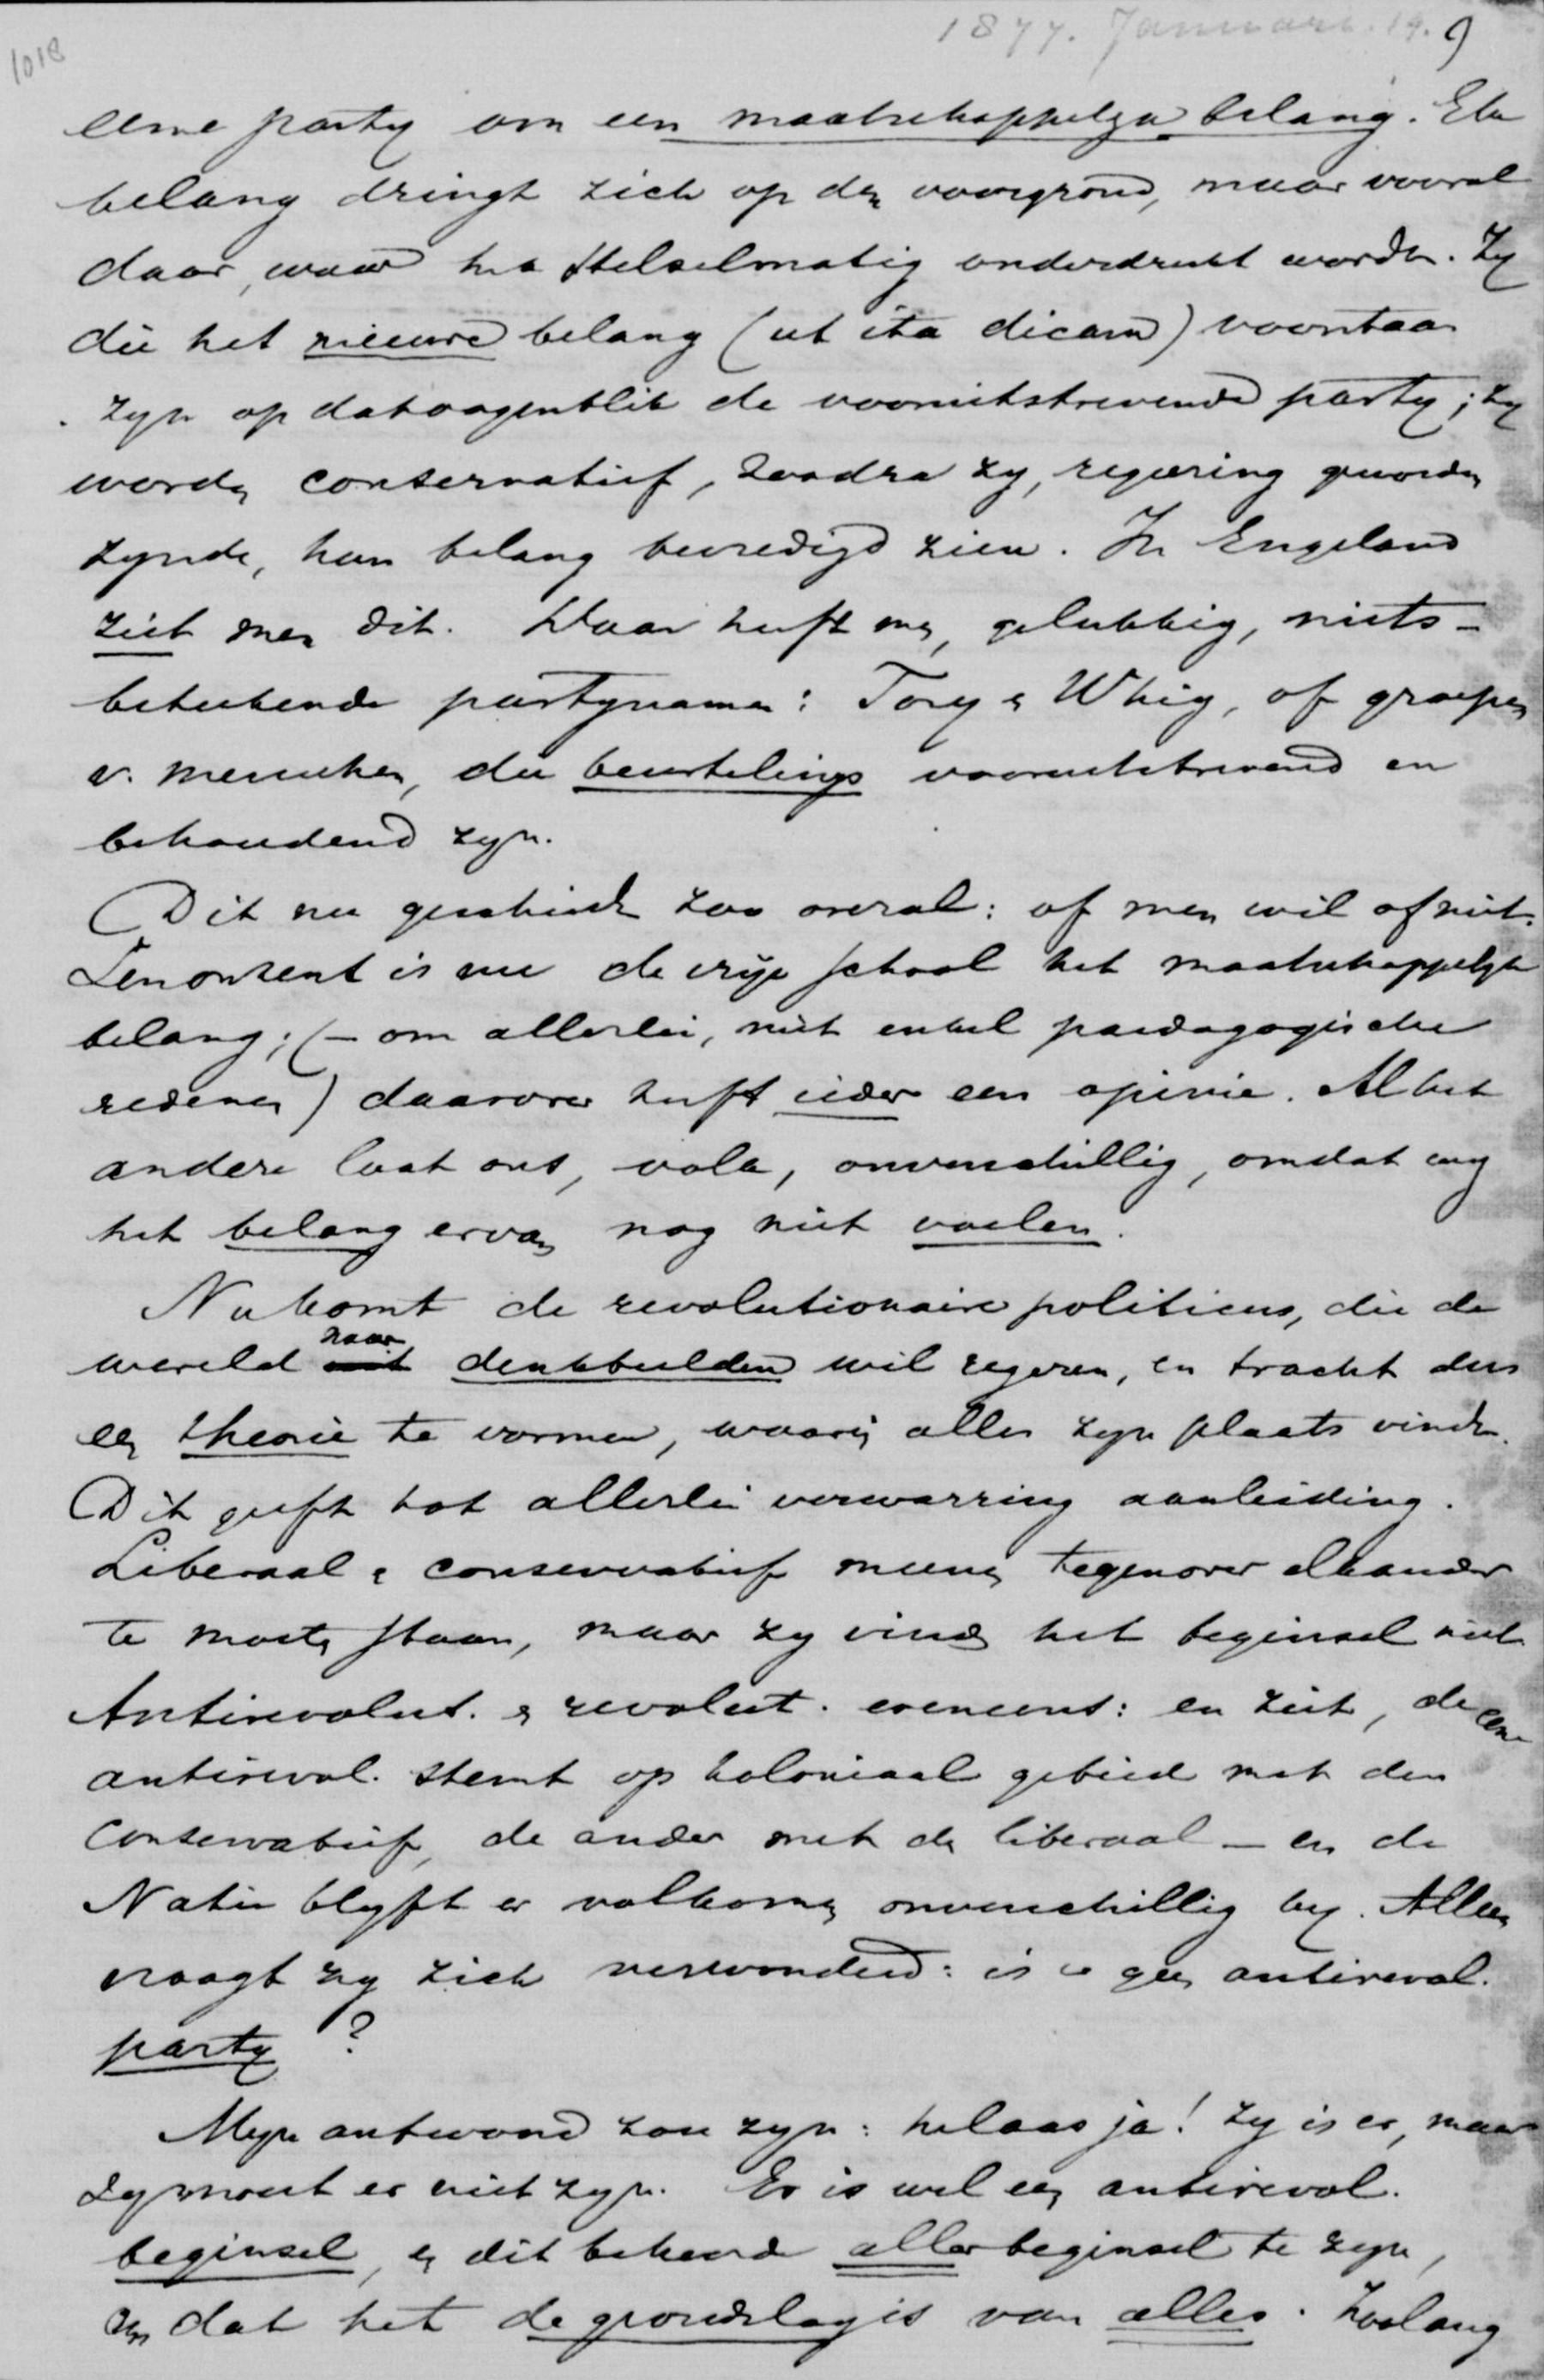 1018
1877. Januari. 19. 9
eene party om een maatschappelyk belang. Elk
belang dringt zich op den voorgrond, maar vooral
daar, waar het stelselmatig onderdrukt wordt. Zy
die het nieuwe belang (ut ita dicam) voorstaan
zyn op dat oogenblik de vooruitstrevende party; zy
worden conservatief, zoodra zy, regeering geworden
zynde, hun belang bevredigd zien. In Engeland
ziet men dit. Daar heeft men, gelukkig, niets-
beteekende partynamen: Tory & Whig, of groepen
v. menschen, die beurtelings vooruitstrevend en
behoudend zyn.
Dit nu geschiedt zoo overal: of men wil of niet.
Ten onzent is nu de vrije school het maatschappelyk
belang; (– om allerlei, niet enkel paedagogische
redenen) daarover heeft ieder een opinie. Al het
andere laat ons, volk, onverschillig, omdat wy
het belang ervan nog niet voelen.
Nu komt de revolutionaire politicus, die de
wereld naar denkbeelden wil regeren, en tracht dus
een theorie te vormen, waarin alles zyn plaats vindt.
Dit geeft tot allerlei verwarring aanleiding.
Liberaal & conservatief meenen tegenover elkander
te moeten staan, maar zy vinden het beginsel niet.
Antirevolut. & revolut. eveneens: en ziet, de eene
antirevol. stemt op koloniaal gebied met den
conservatief, de ander met den liberaal – en de
Natie blyft er volkomen onverschillig by. Alleen
vraagt zy zich verwonderd: is er geen antirevol.
party?
Myn antwoord zou zyn: helaas ja! Zy is er, maar
zy moest er niet zyn. Er is wel een antirevol.
beginsel, en dit behoorde aller beginsel te zyn,
omdat het de grondslag is van alles. Zoolang